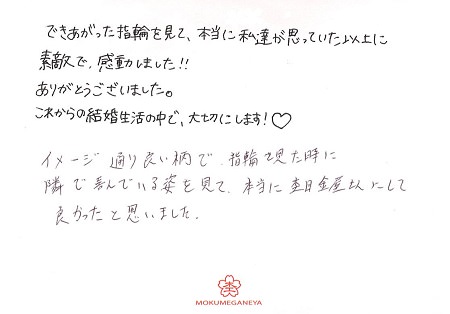 できあがった指輪を見て、本当に私達が思っていた以上に
素敵で、感動しました!!
ありがとうございました。
これからの結婚生活の中で、大切にします!♡
イメージ通り良い柄で、指輪を見た時に
隣で喜んでいる姿を見て、本当に杢目金屋さんにして
良かったと思いました。
MOKUMEGANEYA